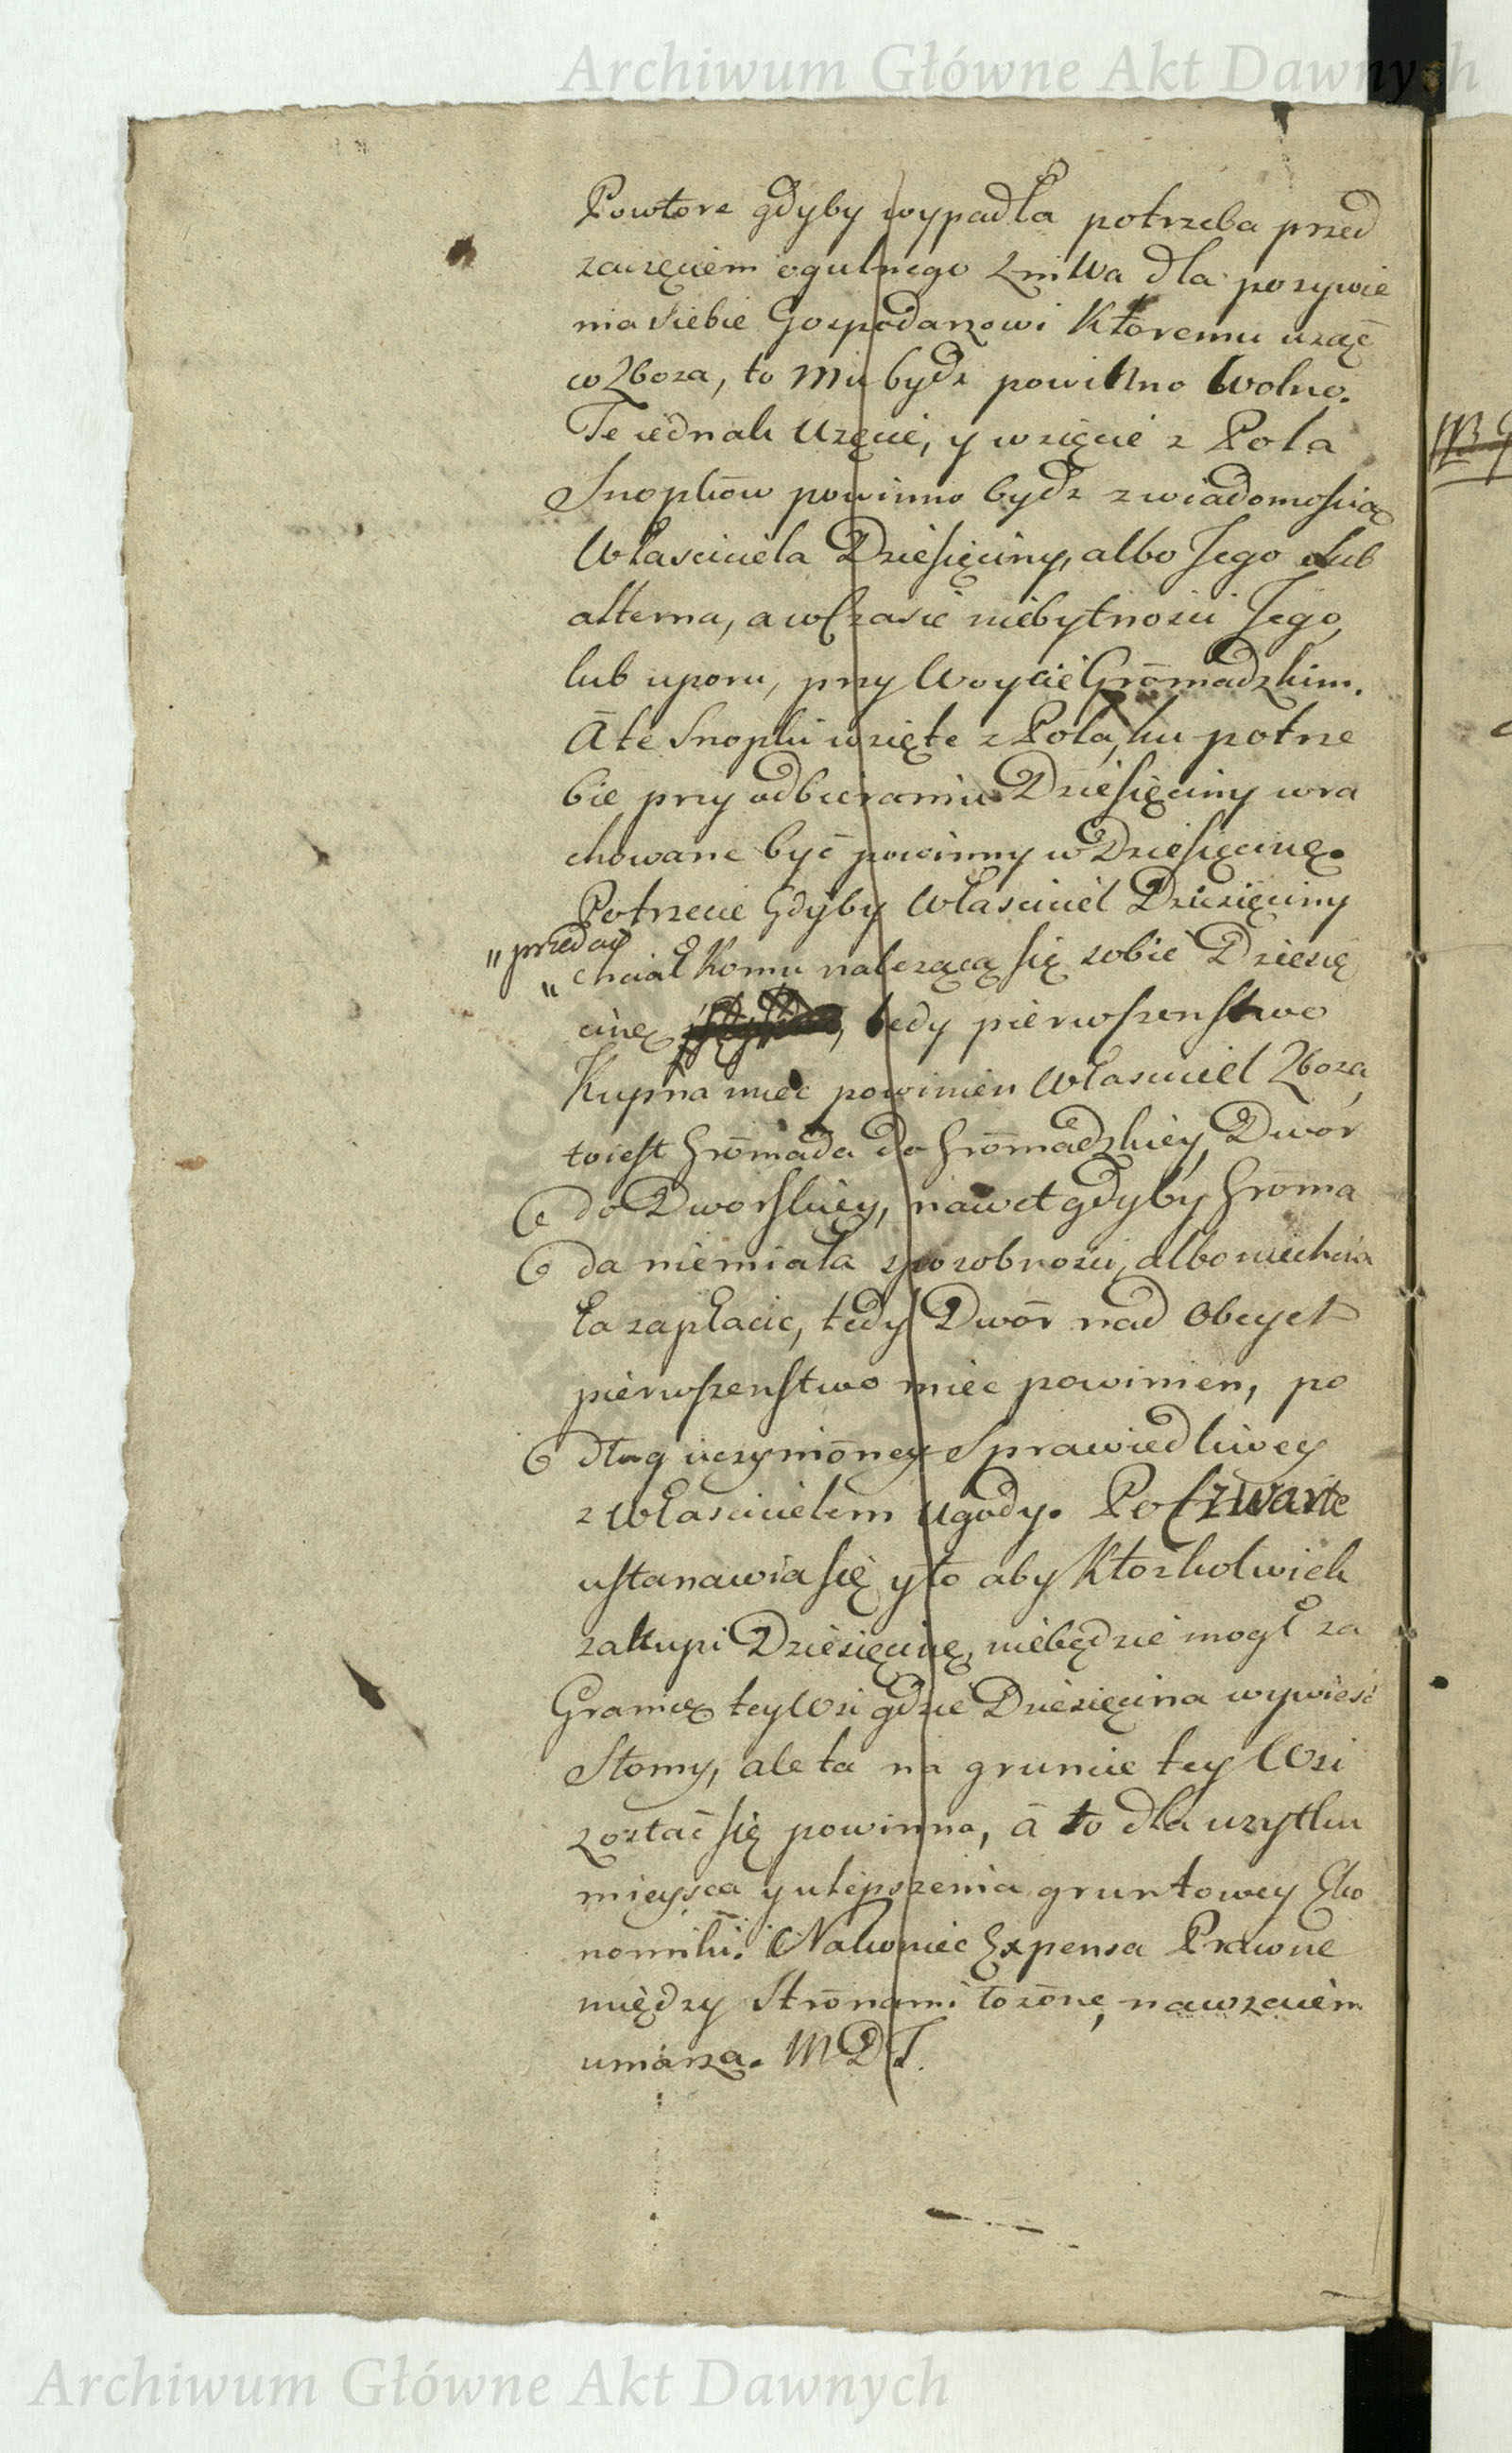 Archiwum Główne Akt Dawnych
Powtore gdyby wypadła potrzeba przed
zaczęciem ogulnego Zniwa dla pozywie
nia siebie Gospodarzowi Ktoremu uząc
co Zboza, to mu bydz powinno wolno.
Te iednak Uzęcie, y wzięcie z Pola
Snopkow powinno bydz z wiadomoscią
Własciciela Dziesięciny, albo Jego Sub
alterna, a w Czasie niebytnosci Jego,
lub uporu, przy Woycie Gromadzkim.
A te Snopki wzięte z Pola, ku potrze
bie przy odbieraniu Dziesięciny wra
chowane być powinny w Dziesięcinę.
Potrzecie Gdyby Własciciel Dziesięciny
" przedac
" chciał komu nalezącą się sobie Dziesię
cinę, tedy pierwszenstwo
Kupna miec powinien Własciciel Zboza,
toiest Gromada do Gromadzkiey, Dwor
do Dworskiey, nawet gdyby Groma
da niemiała sposobnosci, albo niechcia
ła zapłacic, tedy Dwór nad Obcych
pierwszenstwo miec powinien, po
dług uczynioney Sprawiedliwey
z Własicielem Ugody. Po Czwarte
ustanawia się y to aby Ktozkolwiek
zakupi Dziesięcinę, niebędzie mogł za
Granicę tey Wsi gdzie Dziesięcina wywiesć
Słomy, ale ta na gruncie tey Wsi
zostać się powinna, á to dla uzytku
mieysca y ulepszenia gruntowey Eko
nomiki. Nakoniec Expensa Prawne
między Stronami łozone, nawzaiem
umarza. M D J.
Archiwum Główne Akt Dawnych